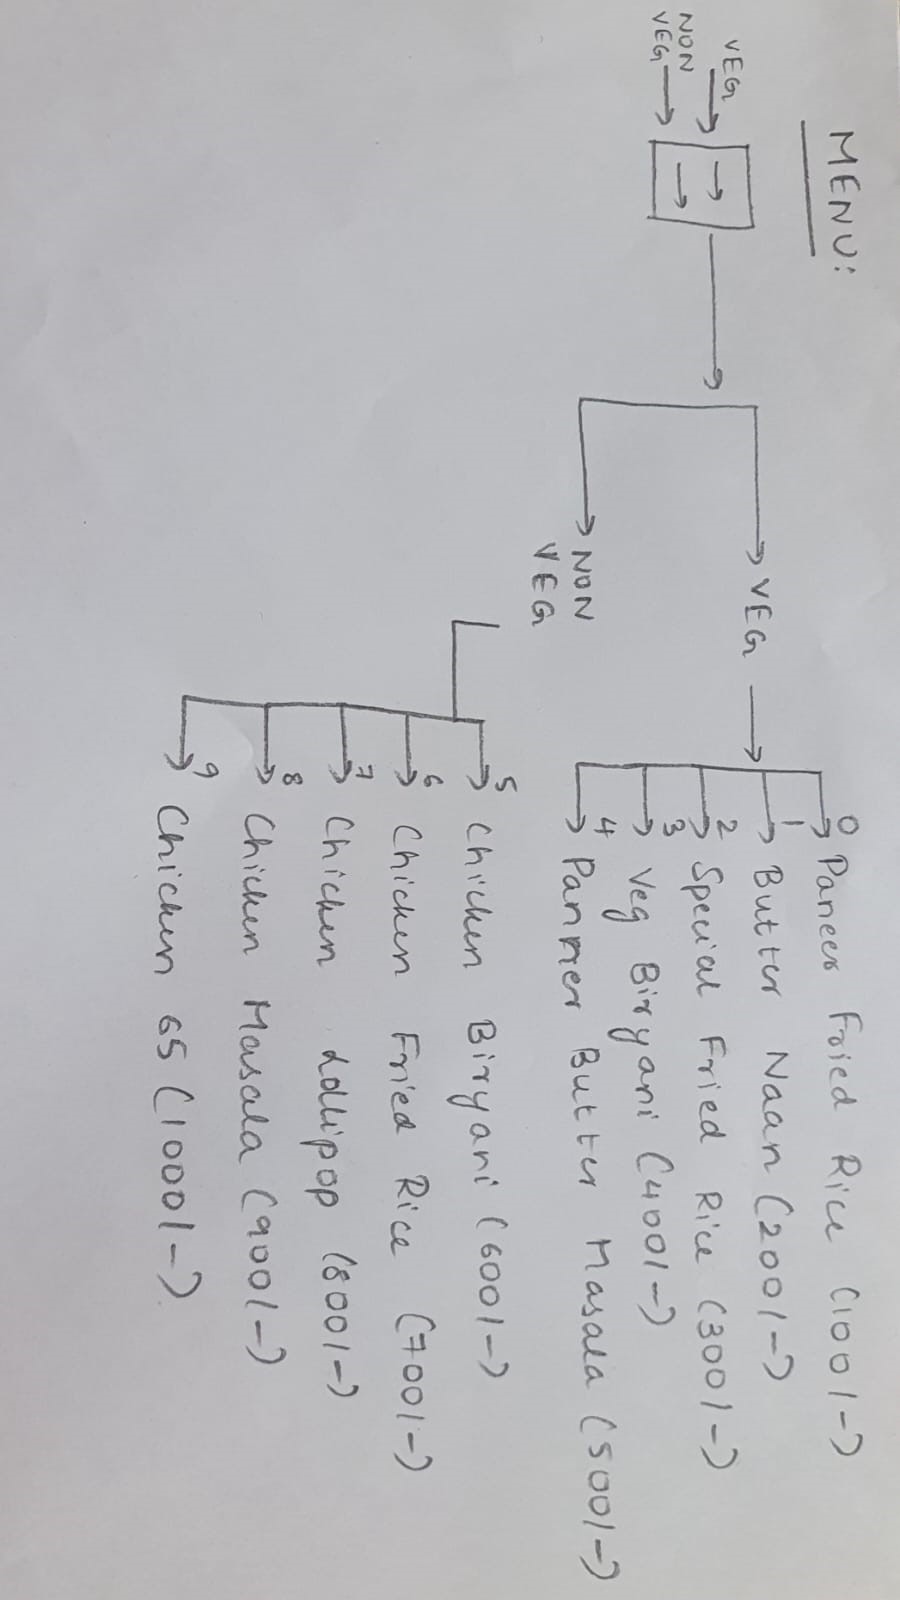 MENU:
VEG
NON
VEG
VEG
0 Paneer Fried Rice (100/-)
1 Butter Naan (200/-)
2 Special Fried Rice (300/-)
3 Veg Biryani (400/-)
4 Panner Butter Masala (500/-)
NON
VEG
5 Chicken Biryani (600/-)
6 Chicken Fried Rice (700/-)
7 Chicken Lollipop (800/-)
8 Chicken Masala (900/-)
9 Chicken 65 (1000/-)